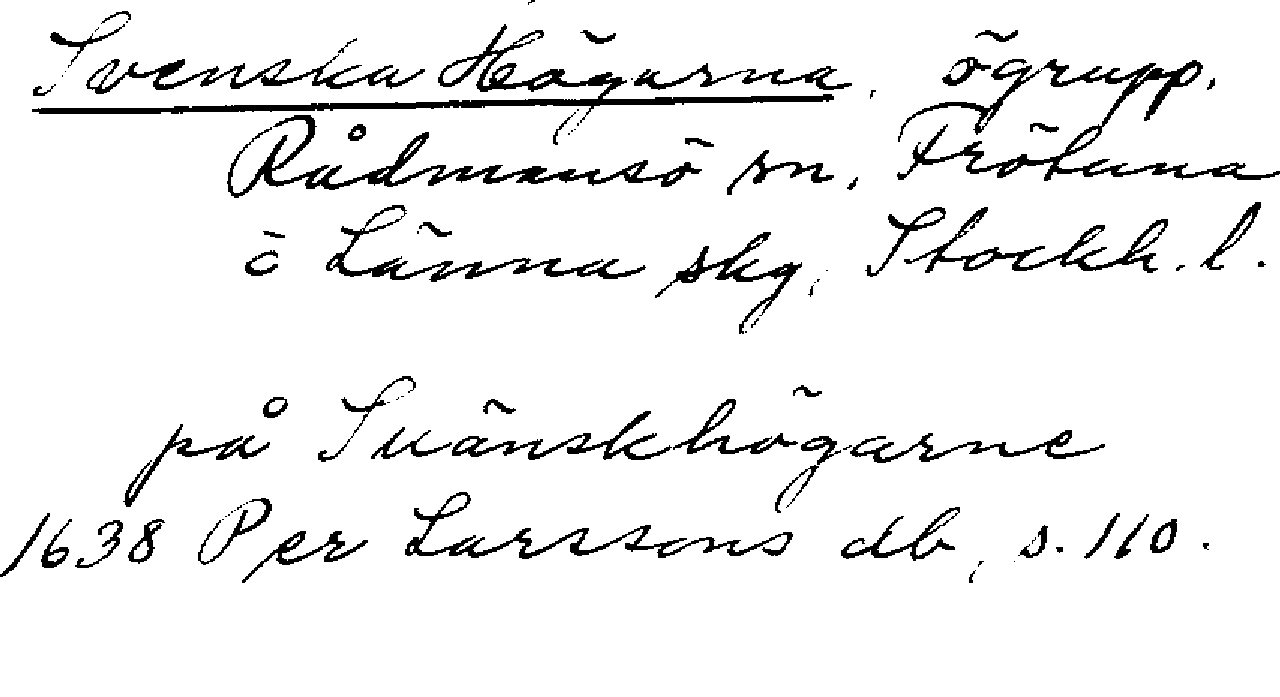 Svenska Högarna, ögrupp,
Rådmansö sn, Frötuna
o Länna skg, Stockh. l.
på Suänskhögarne
1638 Per Larssons db, s. 110.